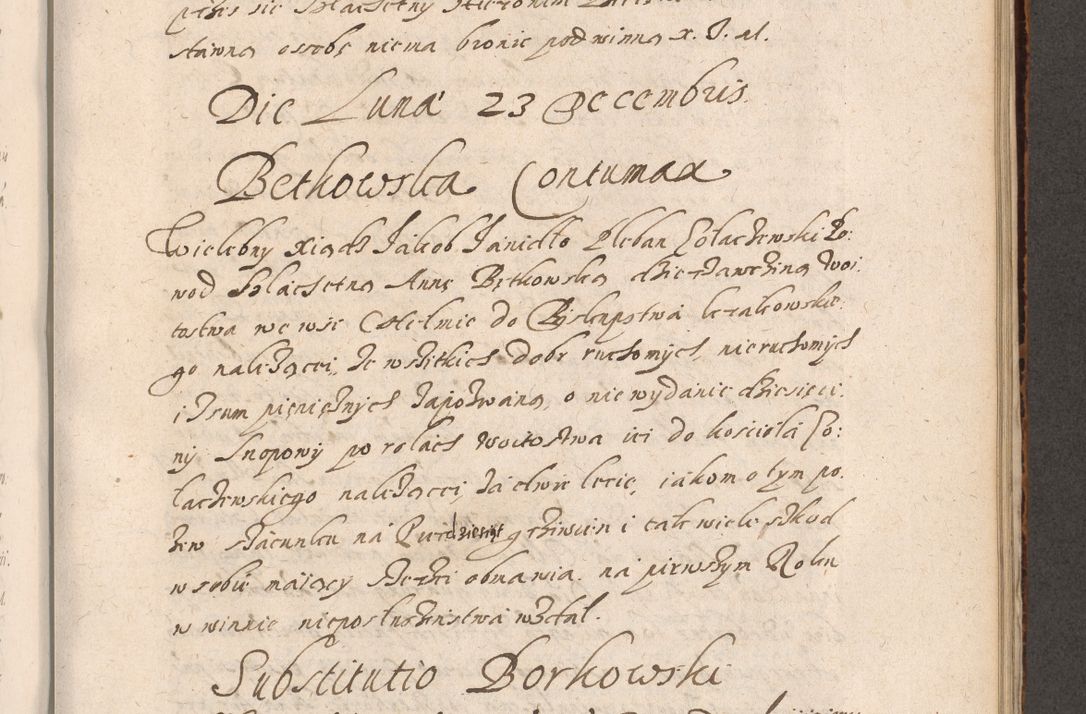 przes sie Szlachetny Hieronim
stawną osobę niema bronic pod winną x. J. al.
Die Luna 23 Decembris
Bętkowska Contumax
Wielebny Xiądz Jakob Janidło Pleban Zołaczewski Po:
wod Szlachetną Annę Bętkowską dzierzawczyną Woi:
tostwa we wsi Chełmie do Biskupstwa krakowskie:
go należącei, ze wszitkich dobr ruchomych, nieruchomych
i zsum pieniężnych zapozwaną, o nie wydanie dziesięci:
ny snopowy po rolach Woitostwa iei do kosciola Zo:
łaczewskiego należącei, za dwie lecie, iakom o tym po:
zew szacunku na Pięcdziesiąt grziwien i tak wiele szkod
w sobie maiący szerzei obmawia. na pierwszym Roku
w winnie nieposłuszenstwa wzdał.
Substitutio Borkowski